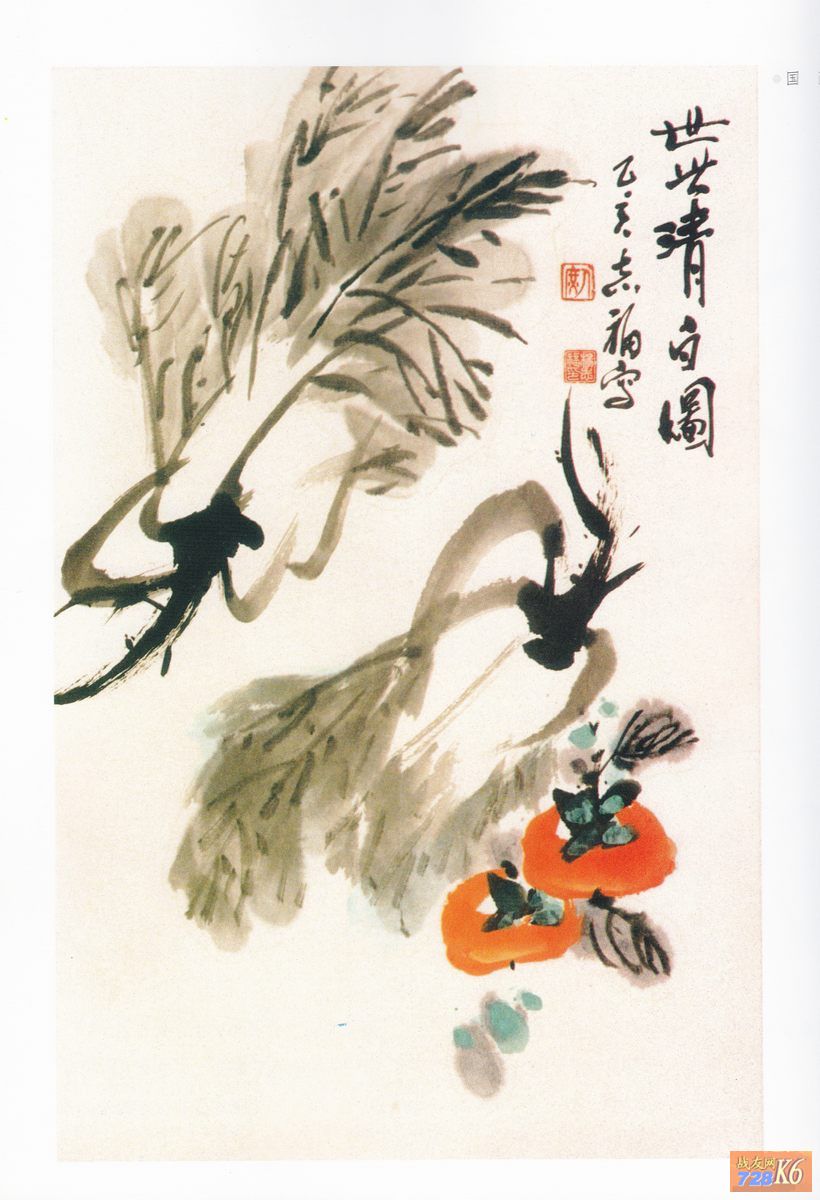 世世清白圖
乙亥志福写
国
战友网
728K6